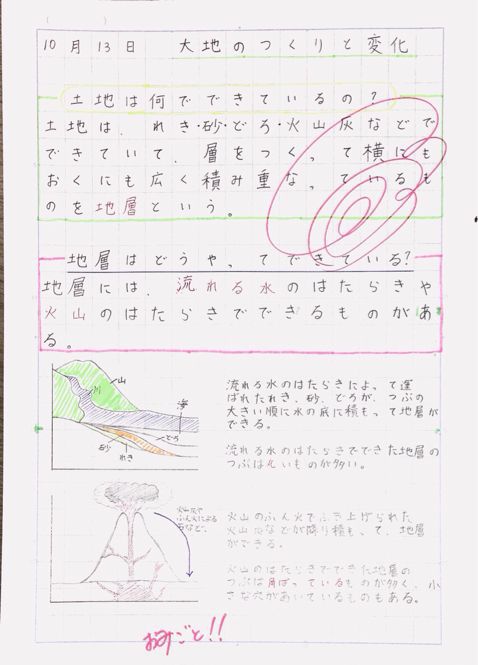 10月13日 大地のつくりと変化
土地は何でできているの?
土地は、れき・砂・どろ・火山灰などで
できていて、層をつくって横にも
おくにも広く積み重なっているも
のを地層という。
地層はどうやってできている?
地層には、流れる水のはたらきや
火山のはたらきでできるものがあ
る。
山
川
海
どろ
砂
れき
流れる水のはたらきによって運
ばれたれき、砂、どろが、つぶの
大きい順に水の底に積もって地層が
できる。
流れる水のはたらきでできた地層の
つぶは丸いものが多い。
火山灰や
ふん火による
石など
火山のふん火でふき上げられた
火山灰などが降り積もって、地層
ができる。
火山のはたらきでできた地層の
つぶは角ばっているものが多く、小
さな穴があいているものもある。
おみごと!!